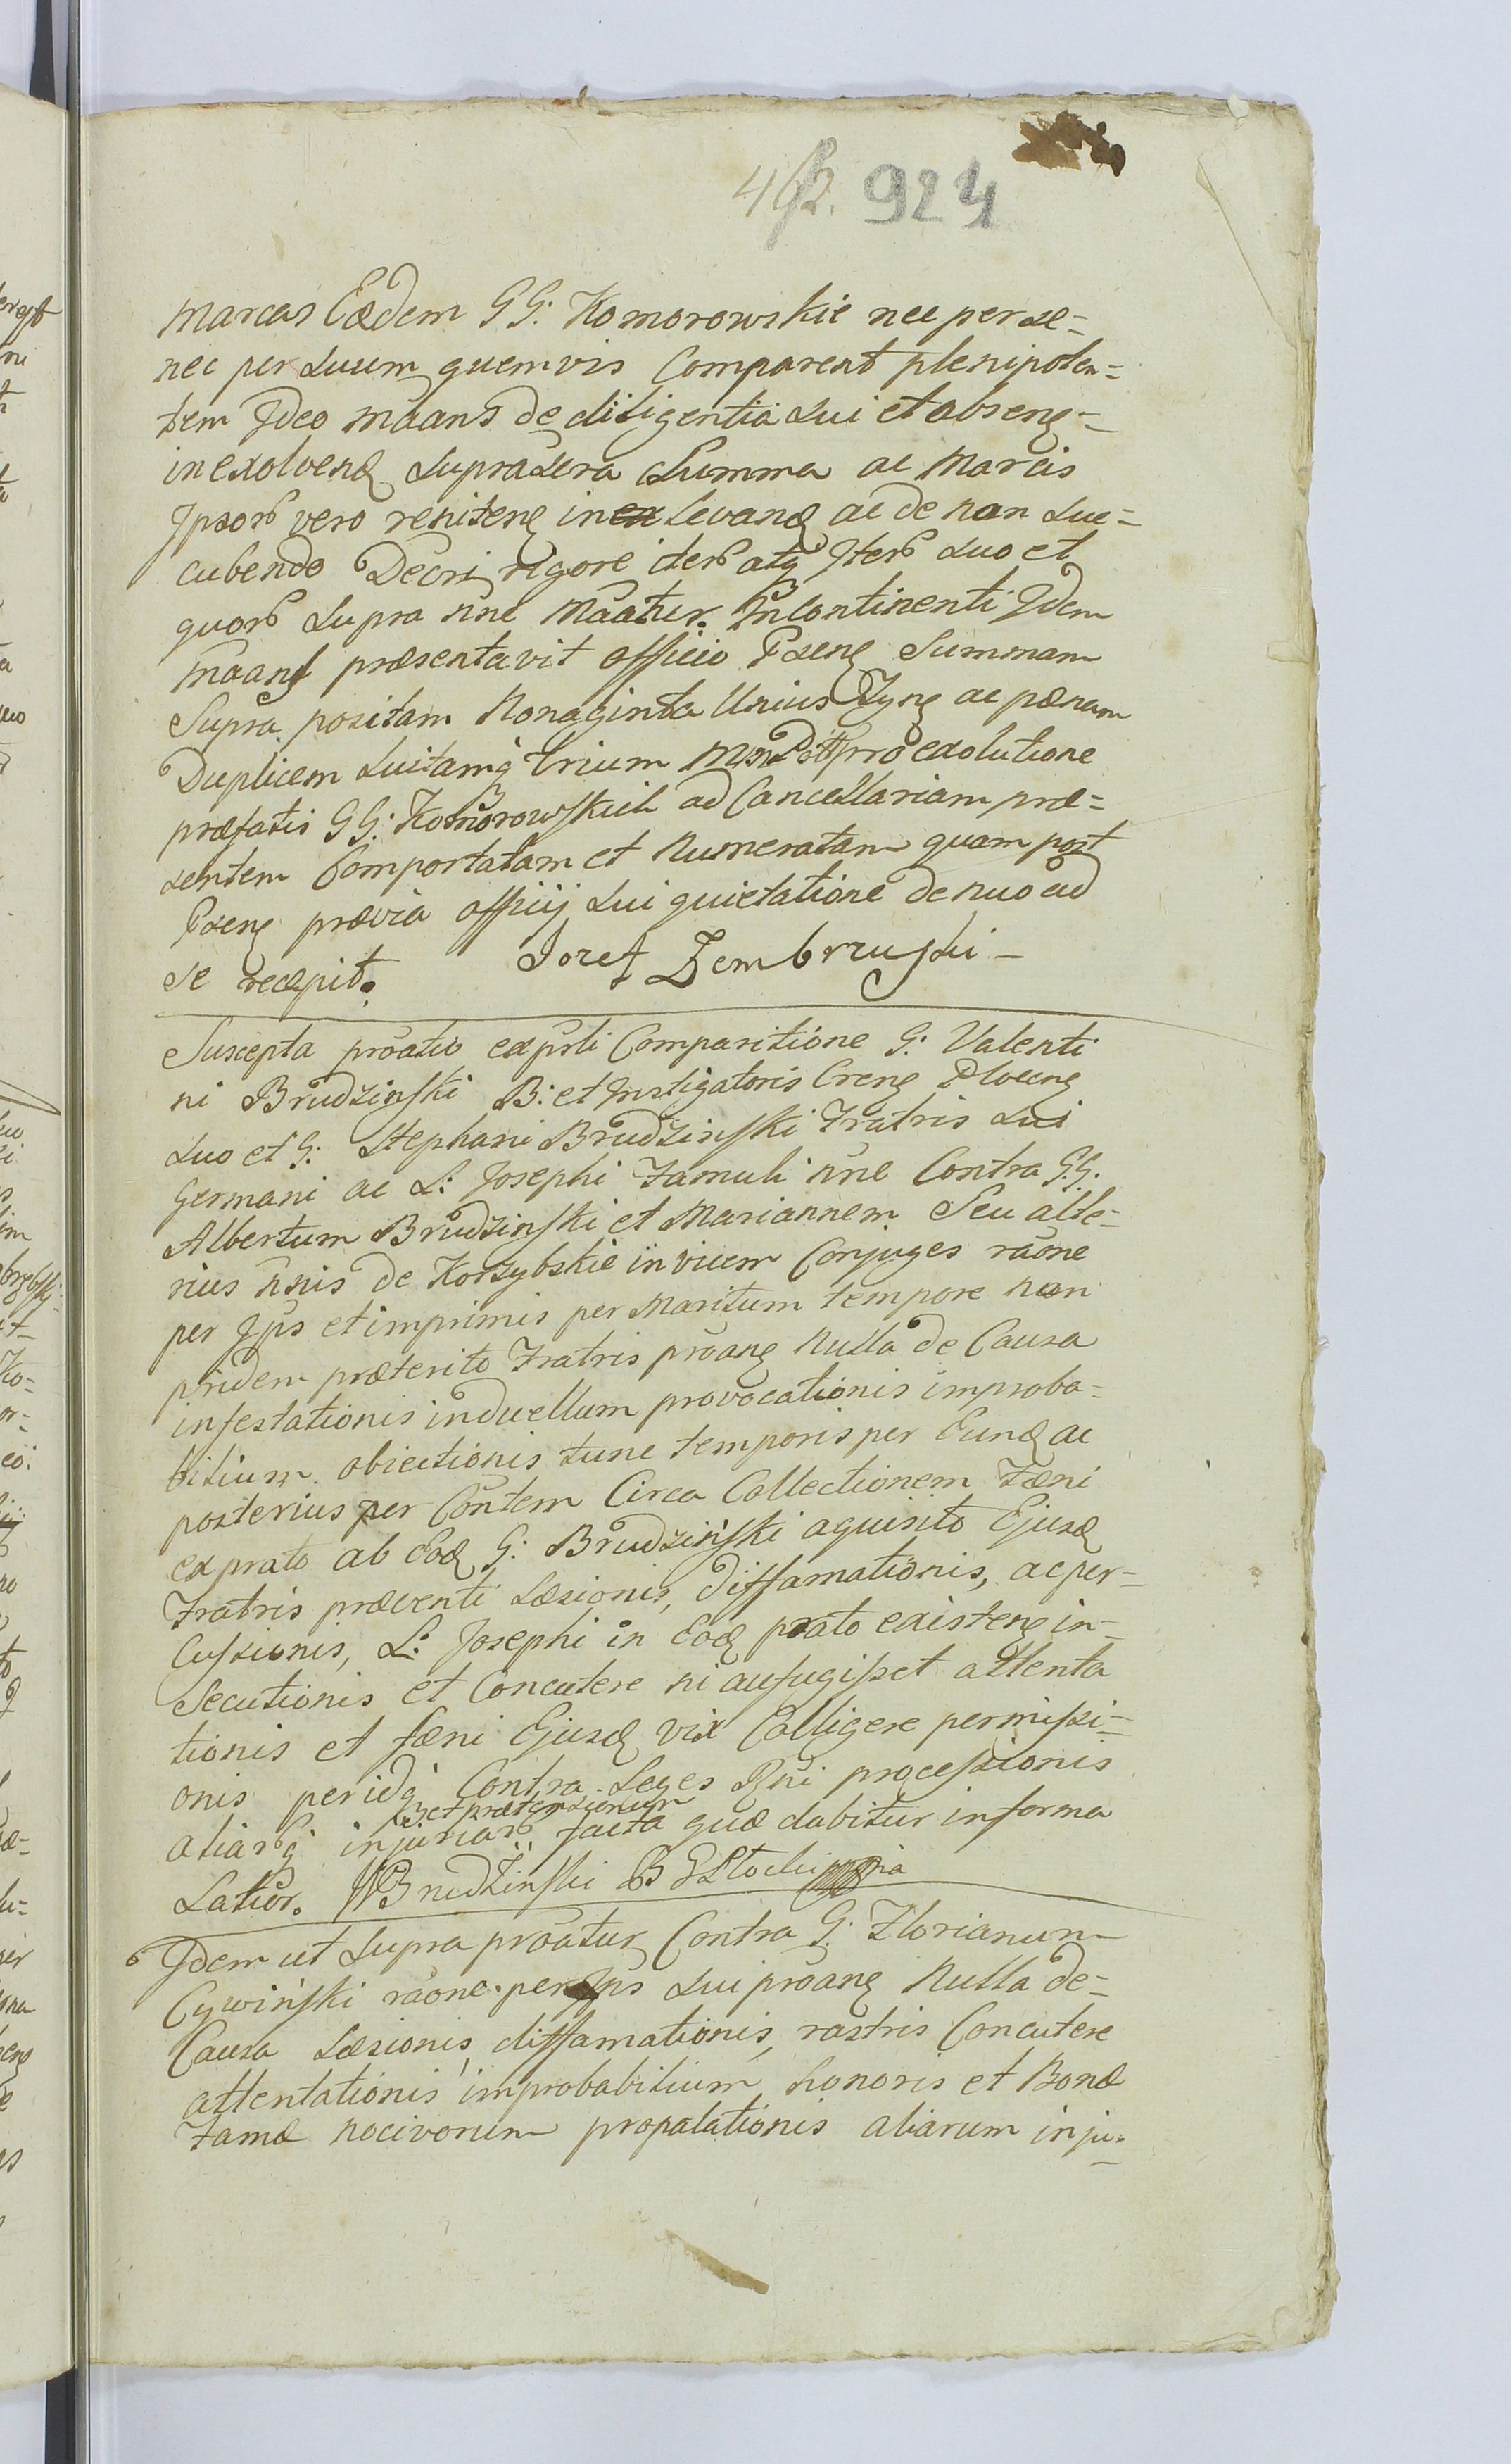 924
marcas Eædem GG: Komorowskie nec per se=
nec per suum quemvis Comparent plenipoten=
tem Ideo māans de diligentia sui et absenę-
in exolvenę suprascra Summa ac Marcis
Ipsorō vero renitenę in levanę ac de non suc=
cubendo Decri rigore iterō atq Iterō suo et
quorō supra nne māatur. Incontinenti Idem
māans præsentavit officio Pszenę Summam
Supra positam Nonaginta Unius Tynę ac pænam
Duplicem luitamq̀ trium pro exolutione
præfatis GG: Komorowskich ad Cancellariam præ=
sentem Comportatam et Numeratam quam post
Pszenę prævia officij sui quietatione denuo ad
se recepit. Iozef Zembrzuski -
Suscepta prōatio expsti Comparitione G: Valenti
ni Brudzinski B: et Instigatoris Crenę Płocenę
suo et G: Stephani Brudzinski Fratris sui
Germani ac L: Josephi Famuli nne Contra GG:
Albertum Brudzinski et Mariannem Seu alte-
rius nnis de Korzybskie invicem Conjuges rāone
per Ips et imprimis per Maritum tempore non
pridem præterito Fratris prōanę Nulla de Causa
infestationis in duellum provocationis improba=
bilium obiectionis tunc temporis per Eunę ac
posterius per Cōntem Circa Collectionem Fæni
ex prato ab Eoę G: Brudziński aquisito Ejusę
Fratris præventi Læsionis, diffamationis, ac per-
cussionis, L: Josephi in Eoę prato existenę in-
secutionis et Concutere ni aufugisset attenta
tionis et fæni Ejusę vix Colligere permissi=
onis per idq̀ Contra Leges Rgni processionis
et prætensionum
aliarōq̀ injuriarō facta quæ dabitur in forma
Latior. WBrudzinski B G Płocki
Idem ut supra prōatur Contra G: Florianum
Cywiński rāone per Ips sui prōanę Nulla de=
Causa Læsionis, diffamationis, rastris Concutere
attentationis improbabilium, honoris et Bonæ
Famæ nocivorum propalationis aliarum inju-